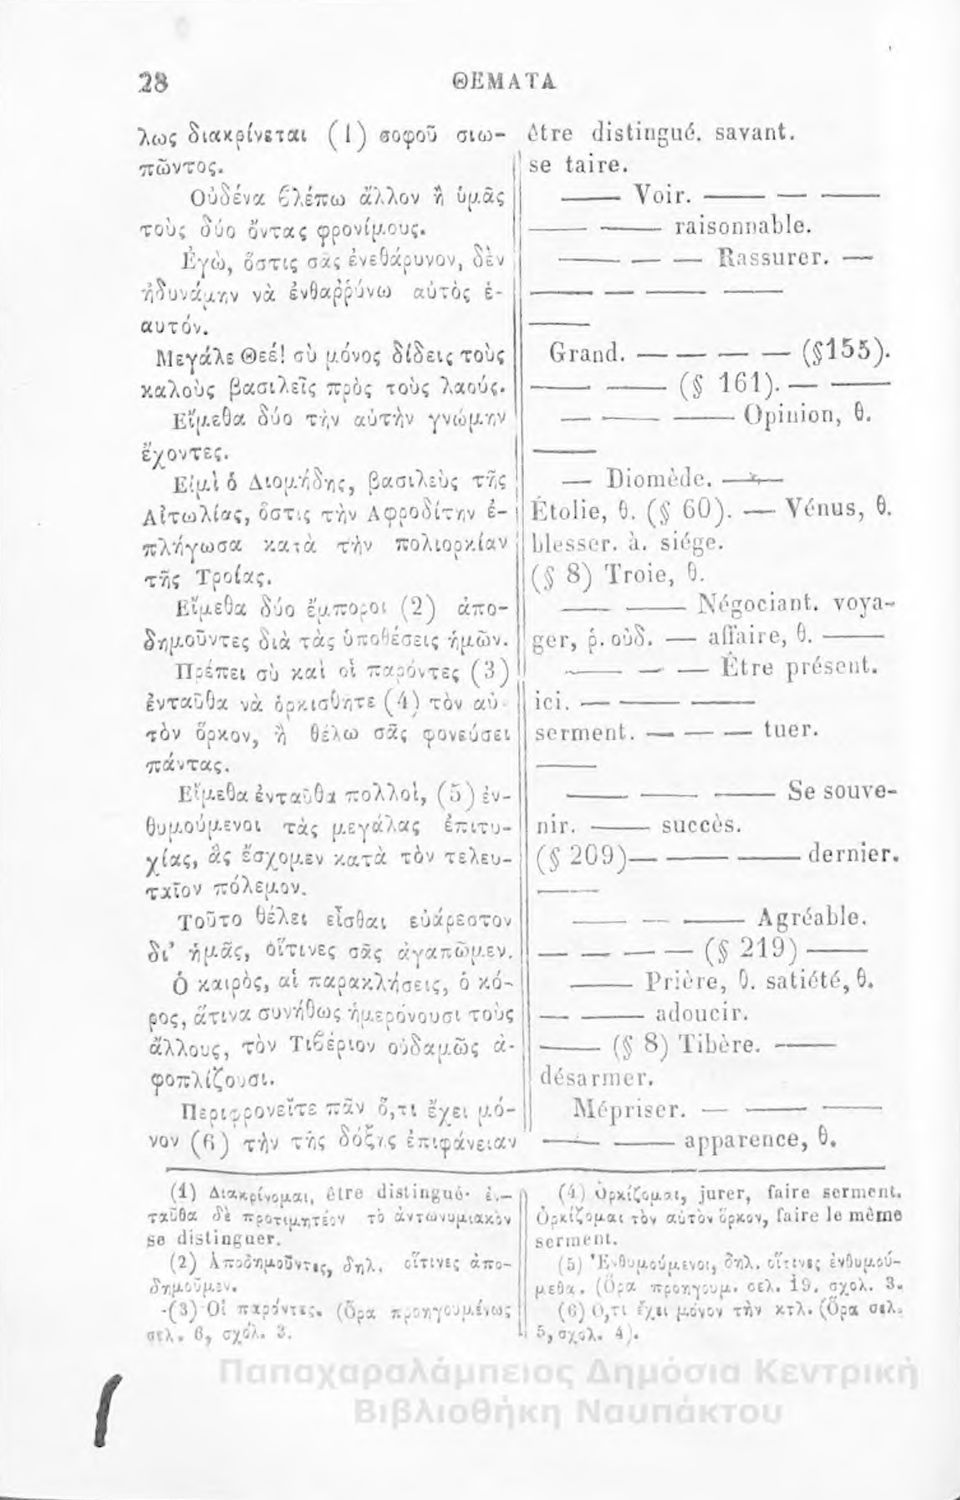 28 ΘΕΜΑΤΑ
λως διακρίνεται (1) σοφοῦ σιω-
πῶντος.
Οὐδένα βλέπω ἄλλον ἢ ὑμᾶς
τοὺς δύο ὄντας φρονίμους.
Ἐγὼ, ὅστις σᾶς ἐνεθάρυνον, δὲν
ἠδυνάμην νὰ ἐνθαῤῥύνω αὐτὸς ἐ-
αυτόν.
Μεγάλε Θεέ! σὺ μόνος δίδεις τοὺς
καλοὺς βασιλεῖς πρὸς τοὺς λαούς.
Εἴμεθα δύο τὴν αὐτὴν γνώμην
ἔχοντες.
Εἰμὶ ὁ Διομήδης, βασιλεὺς τῆς
Αἰτωλίας, ὅστις τὴν Ἀφροδίτην ἐ-
πλήγωσα κατὰ τὴν πολιορκίαν
τῆς Τροίας.
Εἴμεθα δύο ἔμποροι (2) ἀπο-
δημοῦντες διὰ τὰς ὑποθέσεις ἡμῶν.
Πρέπει σὺ καὶ οἱ παρόντες (3)
ἐνταῦθα νὰ ὁρκισθῆτε (4) τὸν αὐ-
τὸν ὅρκον, ἢ θέλω σᾶς φονεύσει
πάντας.
Εἴμεθα ἐνταῦθα πολλοὶ, (5) ἐν-
θυμούμενοι τὰς μεγάλας ἐπιτυ-
χίας, ἃς ἔσχομεν κατὰ τὸν τελευ-
ταῖον πόλεμον.
Τοῦτο θέλει εἶσθαι εὐάρεστον
δι' ἡμᾶς, οἵτινες σᾶς ἀγαπῶμεν.
Ὁ καιρὸς, αἱ παρακλήσεις, ὁ κό-
ρος, ἅτινα συνήθως ἡμερόνουσι τοὺς
ἄλλους, τὸν Τιβέριον οὐδαμῶς ἀ-
φοπλίζουσι.
Περιφρονεῖτε πᾶν ὅ,τι ἔχει μό-
νον (6) τὴν τῆς δόξης ἐπιφάνειαν
être distingué. savant.
se taire.
—— Voir. —— — ——
—— —— raisonnable.
—— — — Rassurer. —
—— —— — ——
——
Grand. — — — — (§155).
—— —— (§ 161). — ——
— —— —— Opinion, θ.
——
— Diomède. ——
Étolie, θ. (§ 60). — Vénus, θ.
blesser. à. siége.
(§ 8) Troie, θ.
—— —— Négociant. voya-
ger, ῥ. οὐδ. — affaire, θ. ——
—— — — Être présent.
ici. — —— ——
serment. — — — tuer.
——
—— — —— Se souve-
nir. —— succès.
(§ 209)— —— —— dernier.
——
—— — —— Agréable.
— — — — (§ 219) ——
—— Prière, θ. satiété, θ.
— —— adoucir.
—— (§ 8) Tibère. ——
désarmer.
Mépriser. — —— ——
—— —— apparence, θ.
(1) Διακρίνομαι, être distingué· ἐν-
ταῦθα δὲ προτιμητέον τὸ ἀντωνυμιακὸν
se distinguer.
(2) Ἀποδημοῦντες, δηλ. οἵτινες ἀπο-
δημοῦμεν.
(3) Οἱ παρόντες. (Ὅρα προηγουμένως
σελ. 6, σχόλ. 3.
(4) Ὁρκίζομαι, jurer, faire serment.
Ὁρκίζομαι τὸν αὐτὸν ὅρκον, faire le même
serment.
(5) Ἐνθυμούμενοι, δηλ. οἵτινες ἐνθυμού-
μεθα. (Ὅρα προηγουμ. σελ. 19. σχολ. 3.
(6) Ὅ,τι ἔχει μόνον τὴν κτλ. (Ὅρα σελ.
5, σχολ. 4).
Παπαχαραλάμπειος Δημόσια Κεντρική
Βιβλιοθήκη Ναυπάκτου